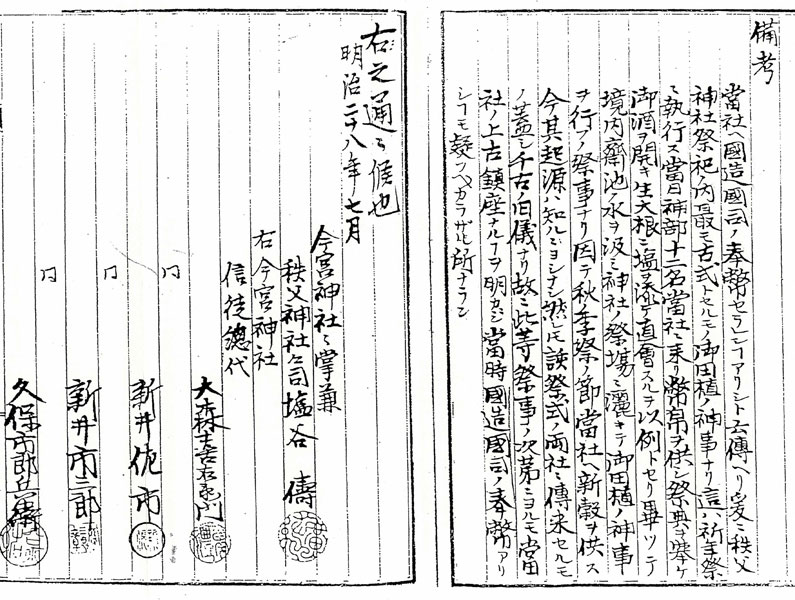 備考
當社ヘ國造國司ノ奉幣セラレシヿアリシト云傳ヘリ爰ニ秩父
神社祭祀ノ内最モ古式トセルモノ御田植ノ神事ナリ這ハ祈年祭
ニ執行ス當日神部十二名當社ニ来リ幣帛ヲ供シ祭典ヲ挙ケ
御酒ヲ開キ生大根ニ塩ヲ添テ直會スルヲ以例トセリ畢ツテ
境内齋池ノ水ヲ汲ミ神社ノ祭場ニ灑キテ御田植ノ神事
ヲ行フノ祭事ナリ因テ秋季祭ノ節當社ヘ新穀ヲ供ス
今其起源ハ知ルヨシナシ然レモ該祭式ノ両社ニ傳来セルモ
ノ蓋シ千古ノ旧儀ナリ故ニ此等祭事ノ次第ニヨルモ當
社ノ上古鎮座ナルヿヲ明カシ當時國造國司ノ奉幣アリ
シヿモ疑フヘカラザル所ナラン
右之通ニ候也
明治二十八年七月
今宮神社ニ掌兼
秩父神社宮司塩谷 儔
右今宮神社
信徒總代
大森吉右衛門
〃 新井佐市
〃 新井市三郎
〃 久保市郎兵衛